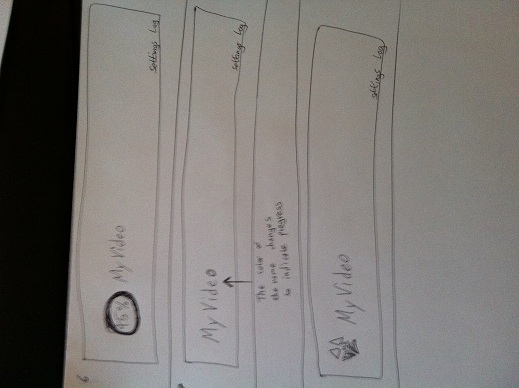 6
45%
My Video
settings Log
My Video
settings Log
The color of
the name changes
to indicate progress
My Video
settings Log